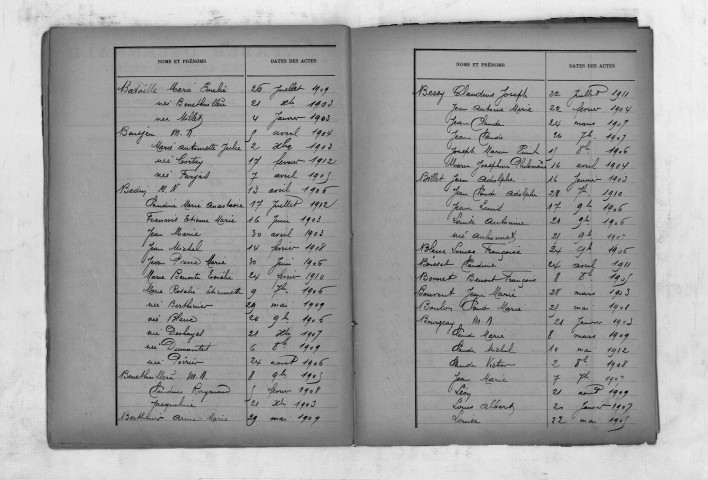 NOMS ET PRÉNOMS DATES DES ACTES
Marie Emilie 26 juillet 1909
née Benethullère 21 Xbre 1903
née Millet 4 janvier 1903
M. N. 9 avril 1904
Marie Antoinette Julie 2 Xbre 1903
née 17 février 1912
née 7 avril 1905
Bedin M. N. 13 avril 1906
Claudine Marie Anastasie 17 juillet 1912
François Etienne Marie 16 juin 1903
Jean Marie 30 avril 1903
Jean Michel 14 février 1908
Jean Pierre Marie 30 juin 1906
Marie Benoite Emélie 24 février 1910
Marie Rosalie Etiennette 9 7bre 1906
née Berthinier 29 mai 1909
née Blanc 20 9bre 1906
née Deshayes 21 Xbre 1907
née Dumontet 6 8bre 1909
née Poirier 24 août 1906
Benethullère M. N. 8 9bre 1905
Claudius Raymond 1 février 1908
Jacqueline 21 Xbre 1903
Berthinier Anne Marie 29 mai 1909
NOMS ET PRÉNOMS DATES DES ACTES
Bessy Claudius Joseph 22 juillet 1911
Jean Antoine Marie 22 février 1904
Jean Claude 24 mars 1907
Jean Claude 20 7bre 1907
Joseph Marie 15 8bre 1906
Marie Josephine Philomène 16 avril 1904
Billet Jean Adolphe 16 janvier 1903
Jean Claude Adolphe 28 7bre 1910
Jean Louis 17 9bre 1906
Louise Antonine 21 9bre 1906
née 21 9bre 1907
Blanc Louise Françoise 24 9bre 1906
Claudine 24 avril 1911
Bonnet Benoit François 8 8bre 1905
Jean Marie 28 mars 1903
Claude Marie 21 mai 1908
Bourgeay M. N. 28 janvier 1903
Claude Marie 8 mars 1909
Claude Michel 10 mai 1912
Claude Victor 2 8bre 1908
Jean Marie 7 7bre 1907
Léon 21 août 1909
Louis Albert 20 janvier 1907
Louise 22 mai 1905